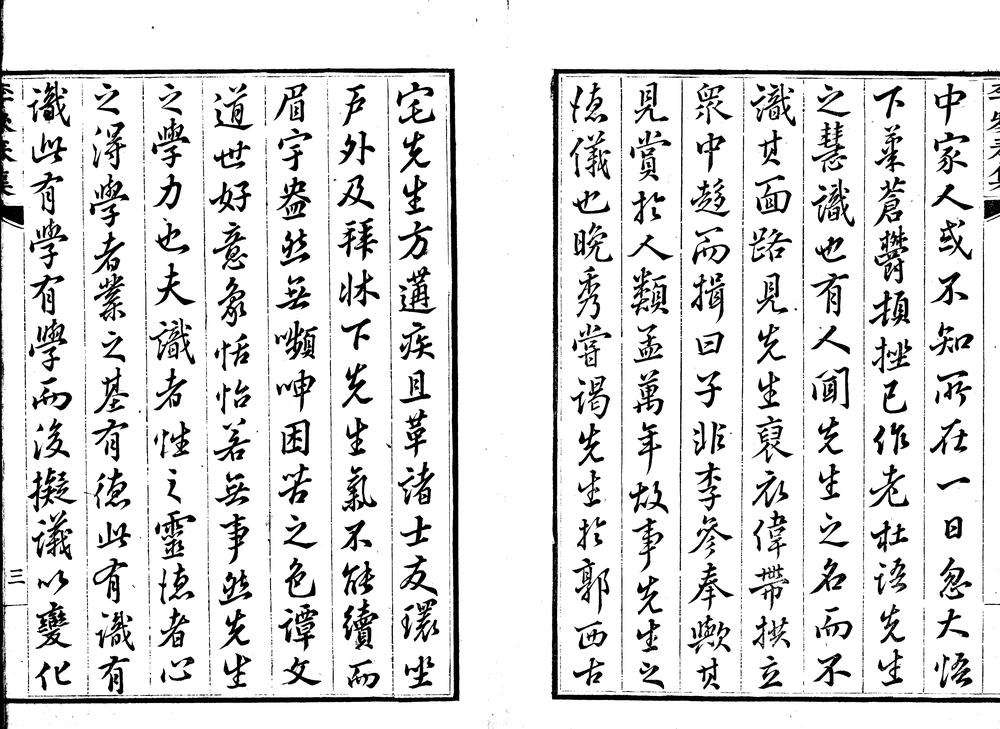 中家人或不知所在一日忽大悟
下筆蒼鬱頓挫已作老杜語先生
之慧識也有人聞先生之名而不
識其面路見先生裒衣偉帶拱立
衆中趍而揖曰子非李參奉歟其
見賞於人類孟萬年故事先生之
德儀也晚秀嘗謁先生於郭西古
宅先生方遘疾且革諸士友環坐
戶外及拜牀下先生氣不能續而
眉宇盎然無嚬呻困苦之色譚文
道世好意象恬怡若無事然先生
之學力也夫識者性之靈德者心
之得學者業之基有德此有識有
識此有學有學而後擬議以變化
三